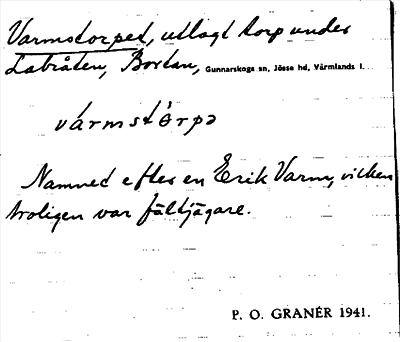 Varmstorpet, utlagt torp under
Labråten, Bortan, Gunnarskogs sn, Jösse hd, Värmlands l.
vármstòrpə
Namned efter en Erik Varm, vilken
troligen var fältjägare.
P. O. GRANÉR 1941.